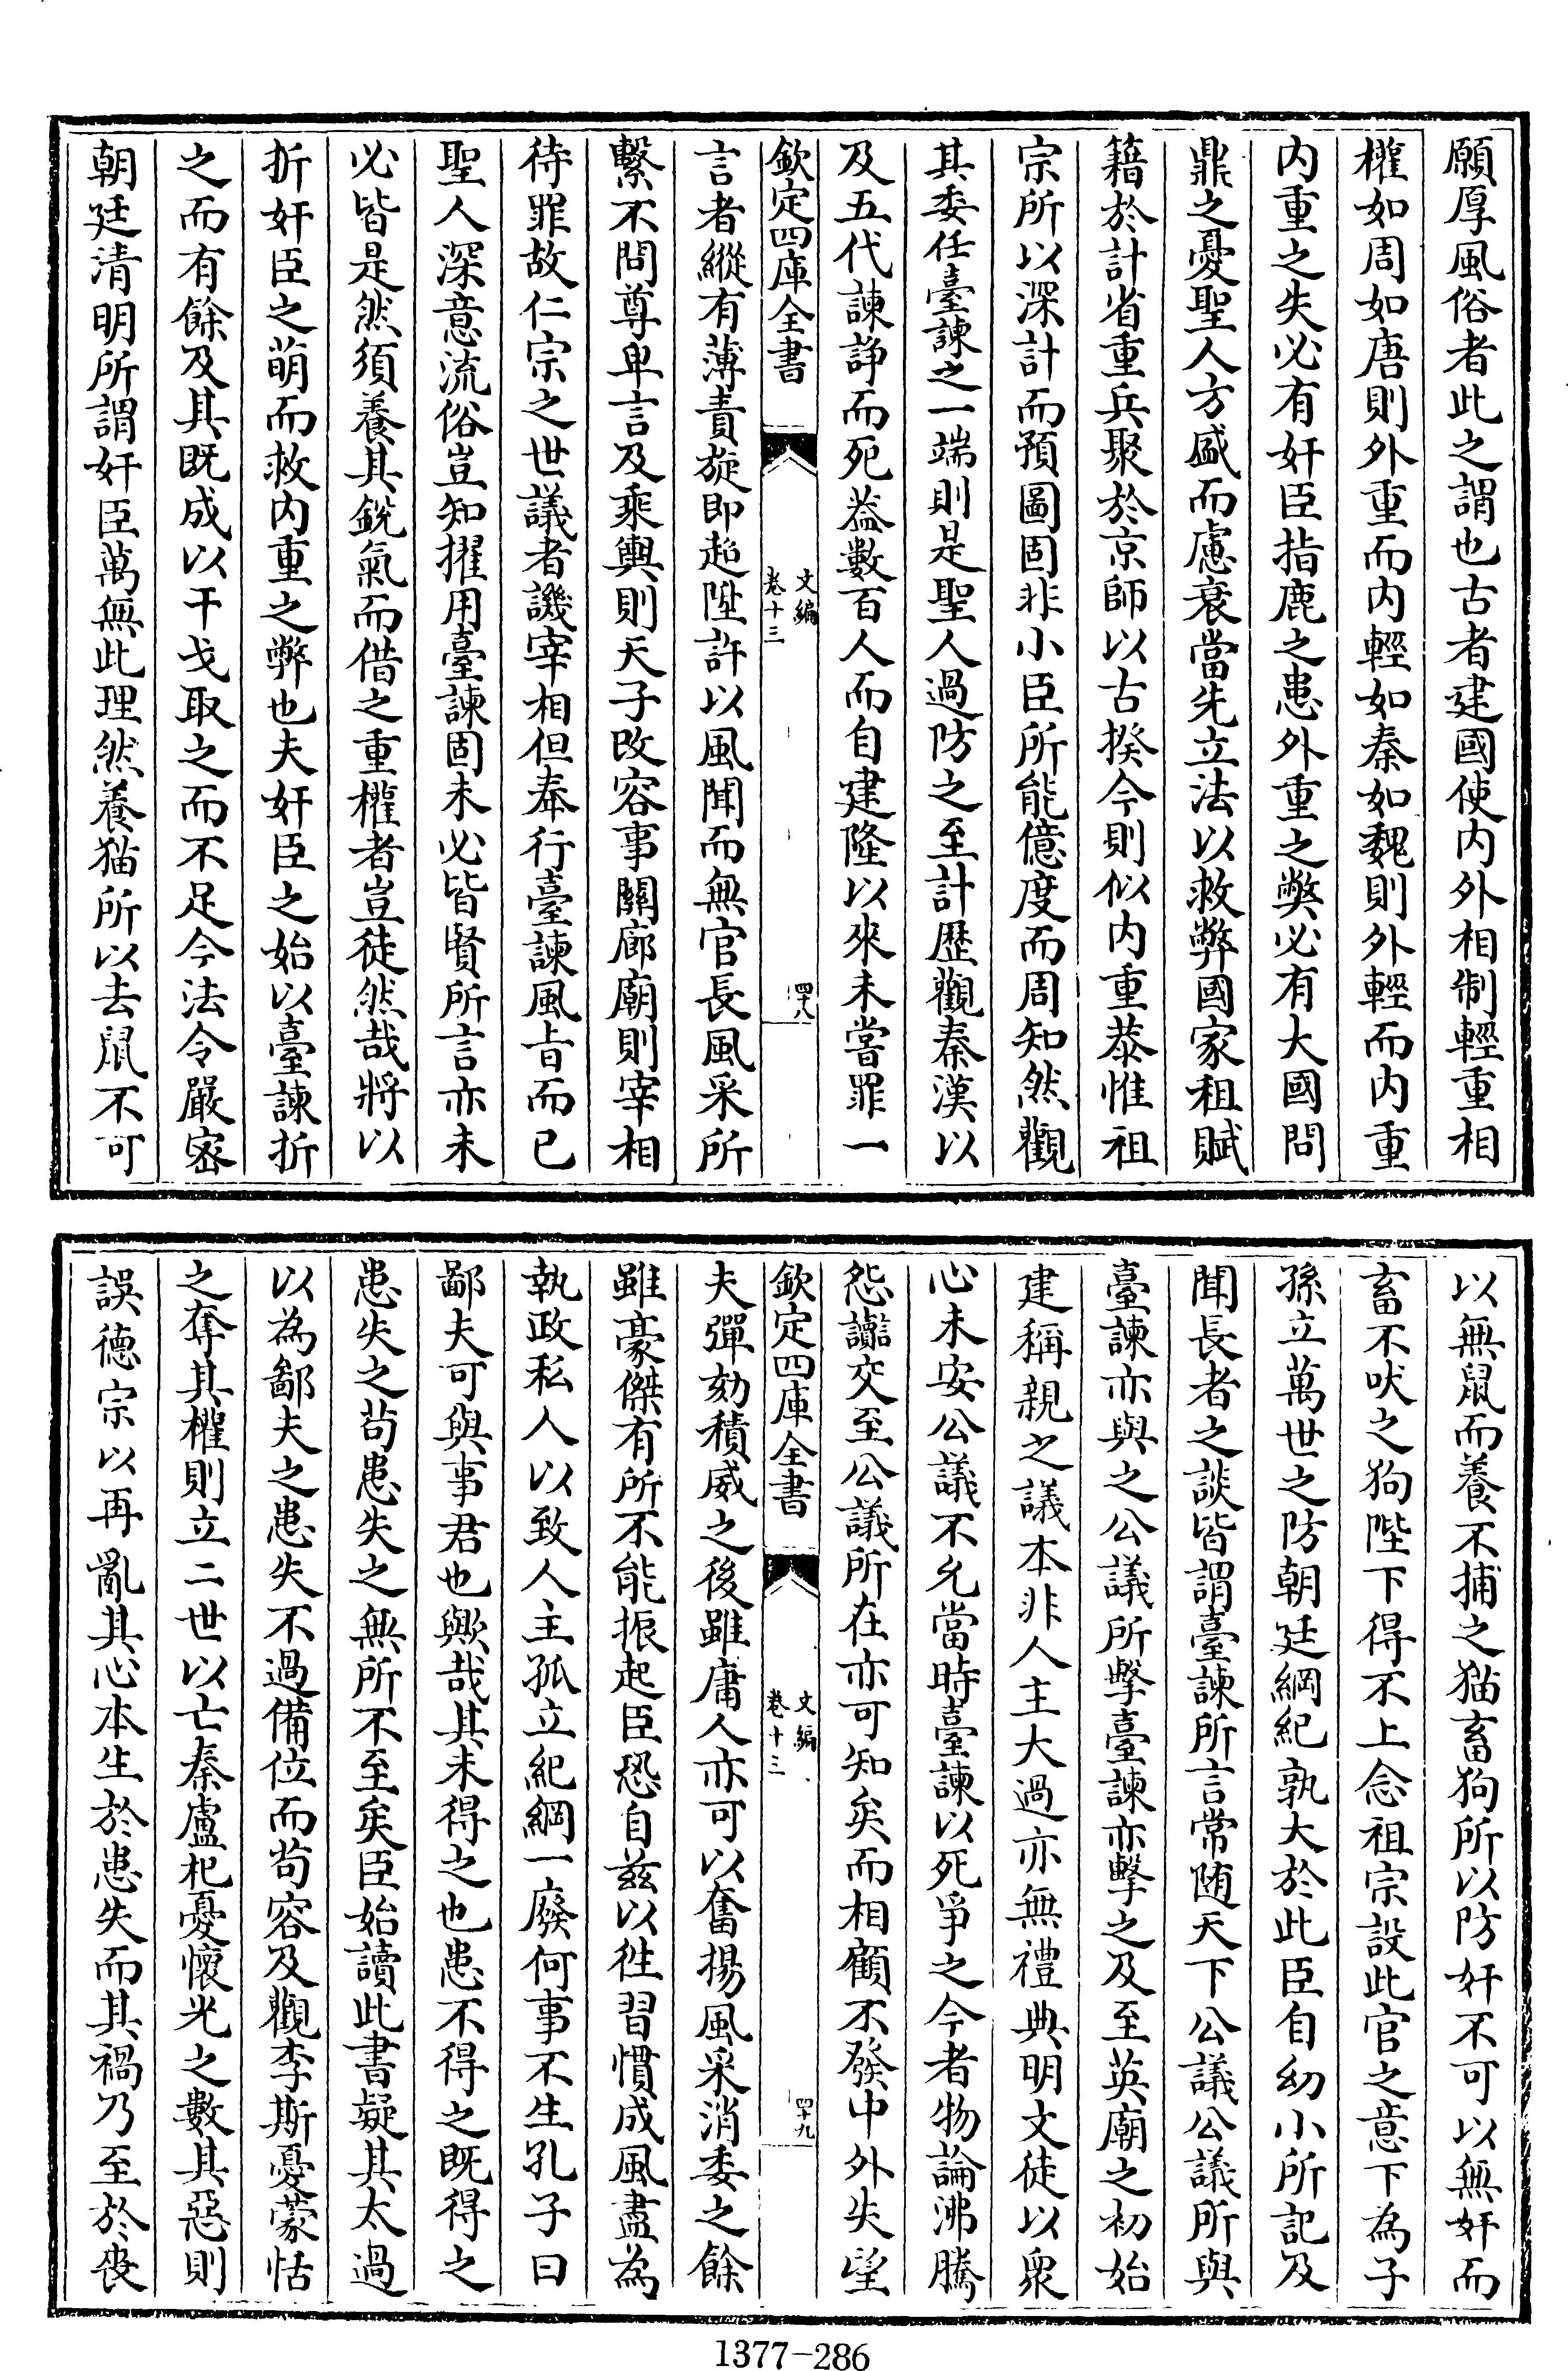 願厚風俗者此之謂也古者建國使内外相制輕重相
權如周如唐則外重而内輕如秦如魏則外輕而内重
内重之失必有奸臣指鹿之患外重之弊必有大國問
鼎之憂聖人方盛而慮衰當先立法以救弊國家租賦
籍於計省重兵聚於京師以古揆今則似内重恭惟祖
宗所以深計而預圖固非小臣所能億度而周知然觀
其委任臺諫之一端則是聖人過防之至計歴觀秦漢以
及五代諫諍而死葢數百人而自建隆以來未嘗罪一
欽定四庫全書
文編
卷十三
四十八
言者縱有薄責旋即超陞許以風聞而無官長風采所
繫不問尊卑言及乘輿則天子改容事關廊廟則宰相
待罪故仁宗之世議者譏宰相但奉行臺諫風㫖而已
聖人深意流俗豈知擢用臺諫固未必皆賢所言亦未
必皆是然須養其銳氣而借之重權者豈徒然哉將以
折奸臣之萌而救内重之弊也夫奸臣之始以臺諫折
之而有餘及其既成以干戈取之而不足今法令嚴密
朝廷清明所謂奸臣萬無此理然養猫所以去鼠不可
以無鼠而養不捕之猫畜狗所以防奸不可以無奸而
畜不吠之狗陛下得不上念祖宗設此官之意下為子
孫立萬世之防朝廷綱紀孰大於此臣自幼小所記及
聞長者之談皆謂臺諫所言常随天下公議公議所與
臺諫亦與之公議所擊臺諫亦擊之及至英廟之初始
建稱親之議本非人主大過亦無禮典明文徒以衆
心未安公議不允當時臺諫以死爭之今者物論沸騰
怨讟交至公議所在亦可知矣而相顧不發中外失望
欽定四庫全書
文編
卷十三
四十九
夫彈劾積威之後雖庸人亦可以奮揚風采消委之餘
雖豪傑有所不能振起臣恐自兹以徃習慣成風盡為
執政私人以致人主孤立紀綱一廢何事不生孔子曰
鄙夫可與事君也歟哉其未得之也患不得之既得之
患失之苟患失之無所不至矣臣始讀此書疑其太過
以為鄙夫之患失不過備位而苟容及觀李斯憂蒙恬
之奪其權則立二世以亡秦盧杞憂懷光之數其惡則
誤德宗以再亂其心本生於患失而其禍乃至於喪
1377-286